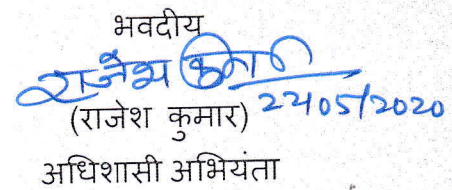 भवदीय
राजेश कुमार
22/05/2020
(राजेश कुमार)
अधिशासी अभियंता